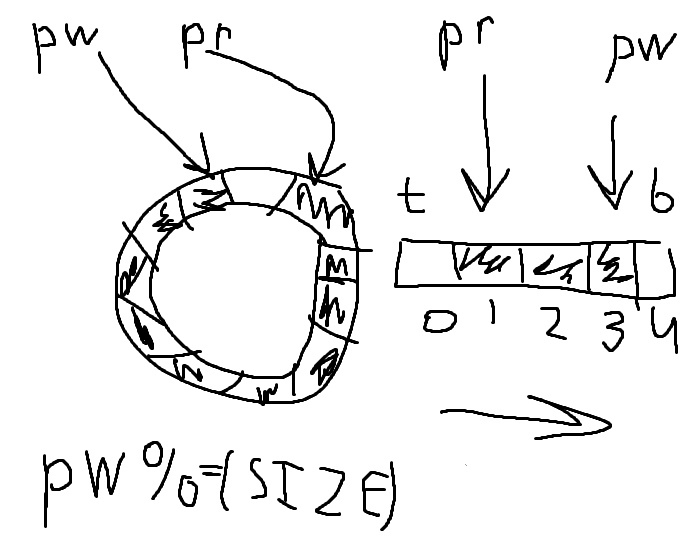 pw pr pr pw
t b
0 1 2 3 4
pw %=(SIZE)